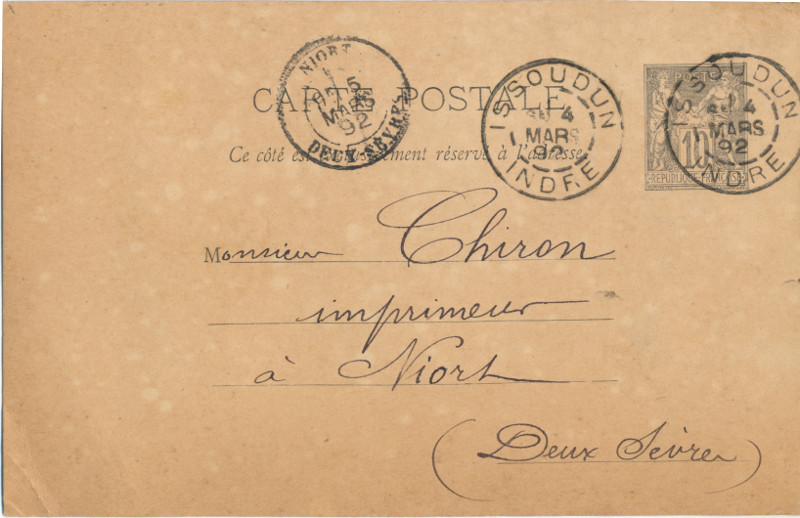 NIORT
5
MARS
92
DEUX-SÈVRES
CARTE POSTALE
Ce côté est exclusivement réservé à l'adresse
ISSOUDUN
4
MARS
92
INDRE
POSTES
10
REPUBLIQUE FRANÇAISE
ISSOUDUN
4
MARS
92
INDRE
Monsieur Chiron
imprimeur
à Niort
(Deux Sèvres)